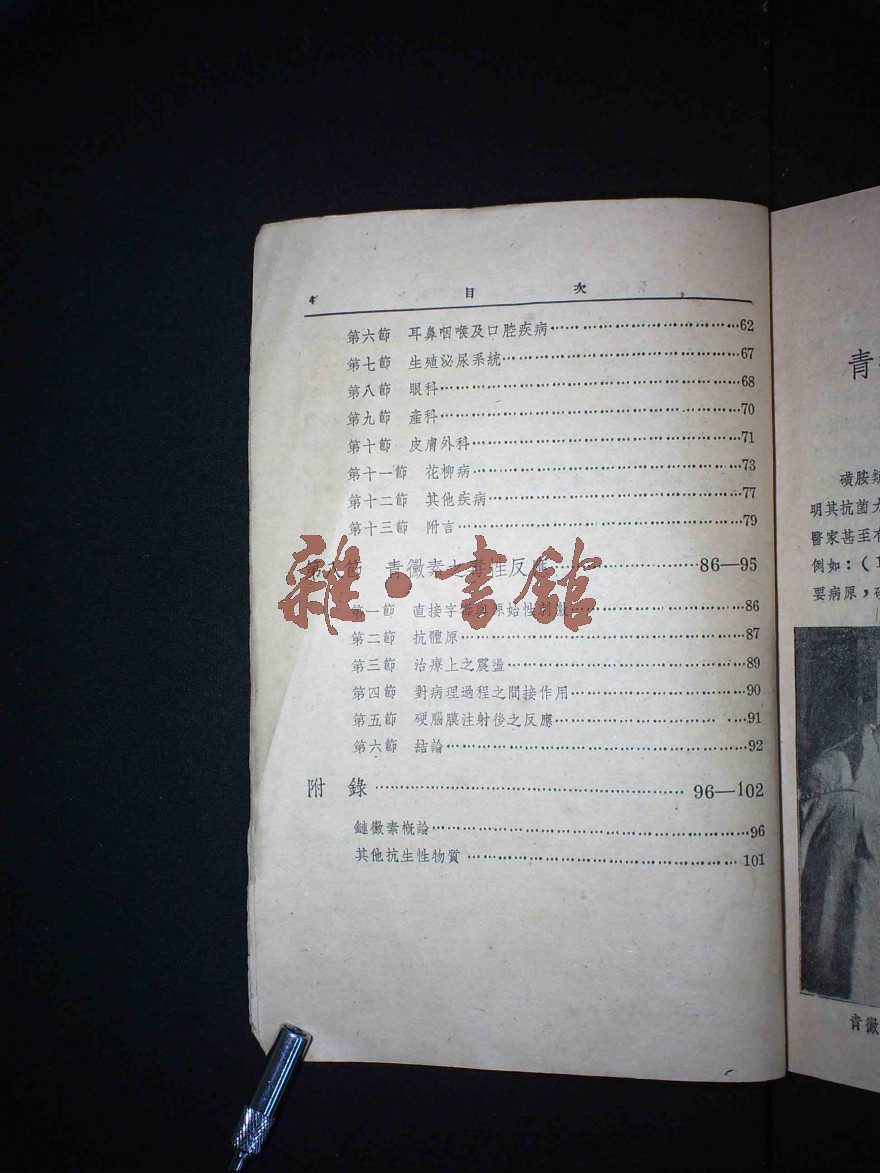 4 目 次
第六節 耳鼻咽喉及口腔疾病……62
第七節 生殖泌尿系統……67
第八節 眼科……68
第九節 產科……70
第十節 皮膚外科……71
第十一節 花柳病……73
第十二節 其他疾病……77
第十三節 附言……79
青黴素之毒性反應……86—95
第一節 直接 原始性刺激……86
第二節 抗體原……87
第三節 治療上之震盪……89
第四節 對病理過程之間接作用……90
第五節 硬腦膜注射後之反應……91
第六節 結論……92
附 錄……96—102
鏈黴素概論……96
其他抗生性物質……101
雜·書館
青
磺胺類
明其抗菌
醫家甚至有
例如：（1
要病原，
青黴